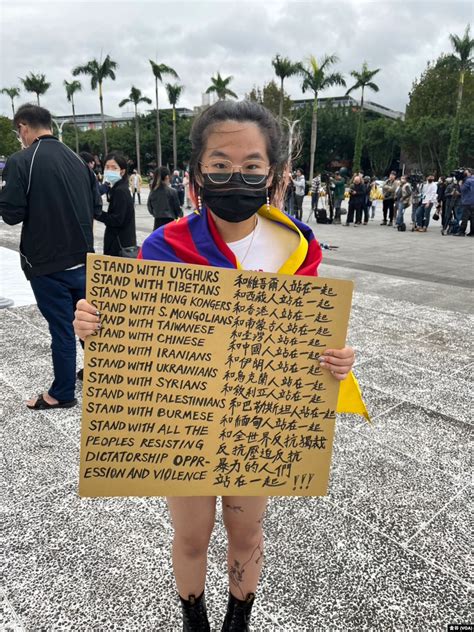 STAND WITH UYGHURS 和維吾爾人站在一起
STAND WITH TIBETANS 和西藏人站在一起
STAND WITH HONG KONGERS 和香港人站在一起
STAND WITH S. MONGOLIANS 和南蒙古人站在一起
STAND WITH TAIWANESE 和台灣人站在一起
STAND WITH CHINESE 和中國人站在一起
STAND WITH IRANIANS 和伊朗人站在一起
STAND WITH UKRAINIANS 和烏克蘭人站在一起
STAND WITH SYRIANS 和敘利亞人站在一起
STAND WITH PALESTINIANS 和巴勒斯坦人站在一起
STAND WITH BURMESE 和緬甸人站在一起
STAND WITH ALL THE 和全世界反抗獨裁
PEOPLES RESISTING 反抗壓迫反抗
DICTATORSHIP OPPR- 暴力的人們
ESSION AND VIOLENCE 站在一起!!!